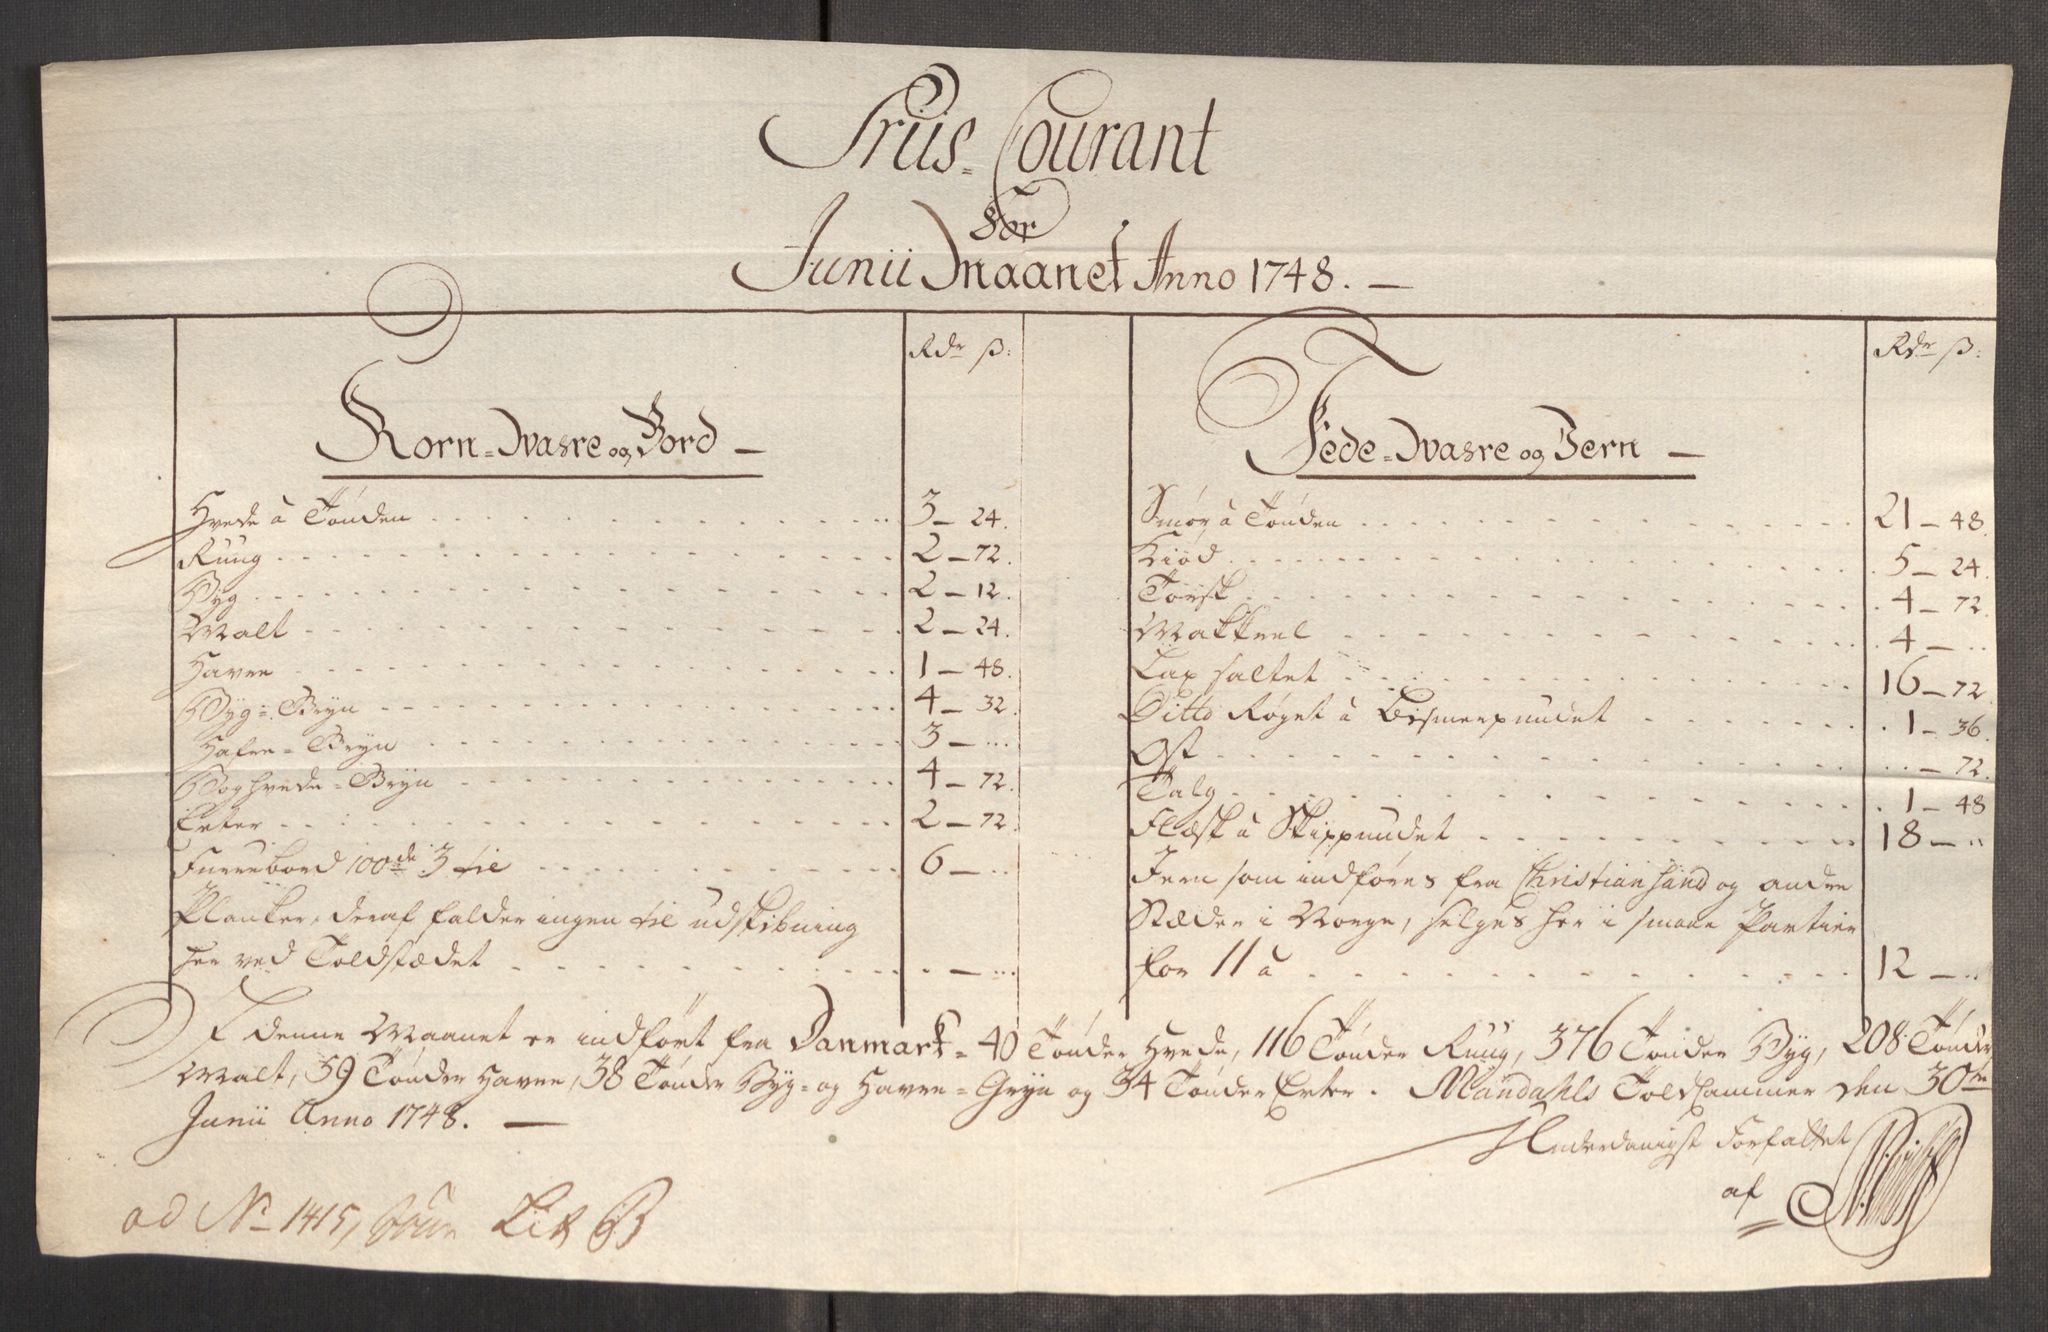 Priis=Courant
For
Junii Maanet Anno 1748. —
Rdr ß:
Korn=Vahre og Bord —
Hvede â Tønden 3 — 24.
Ruug 2 — 72.
Byg 2 — 12.
Malt 2 — 24.
Havre 1 — 48.
Byg=Gryn 4 — 32.
Hafre=Gryn 3 — ...
Boghvede=Gryn 4 — 72.
Erter 2 — 72.
Furrebord 100de 3 til 6 — ..
Planker, deraf falder ingen til udskibning
her ved Toldstædet . — ...
Rdr ß:
Fede=Vahre og Jern —
Smør â Tønden 21 — 48
Kiød 5 — 24.
Torsk 4 — 72
Makkrel 4 — ..
Lax saltet 16 — 72
Ditto Røget â Bismerpundet 1 — 36.
Ost .. — 72.
Talg 1 — 48
Flæsk â Skippundet 18 — ..
Jern som indføres fra Christiansand og andre
Stæder i Norge, selges her i smaae Partier
for 11 â 12 — ..
I denne Maanet er indført fra Danmark= 40 Tønder Hvede, 116 Tønder Ruug, 376 Tønder Byg, 208 Tønder
Malt, 59 Tønder Havre, 38 Tønder Byg= og Havre=Gryn og 34 Tønder Erter. Mandahls Told Cammer den 30te
Junii Anno 1748. —
Underdanigst Forfattet
af
ad No 1415, Litr B